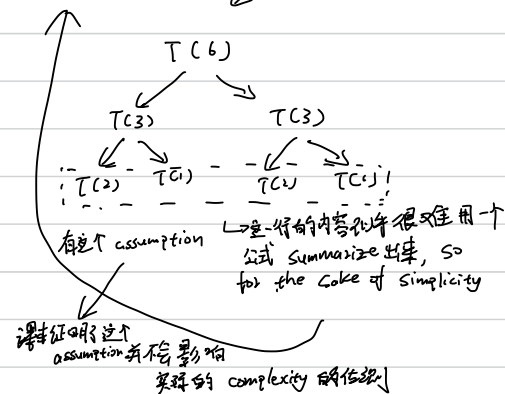 T(6)
T(3) T(3)
T(2) T(1) T(2) T(1)
有这个 assumption
这一行的内容似乎很难用一个
公式 summarize 出来, so
for the sake of simplicity
课本证明了这个
assumption 并不会影响
实际的 complexity 的估测